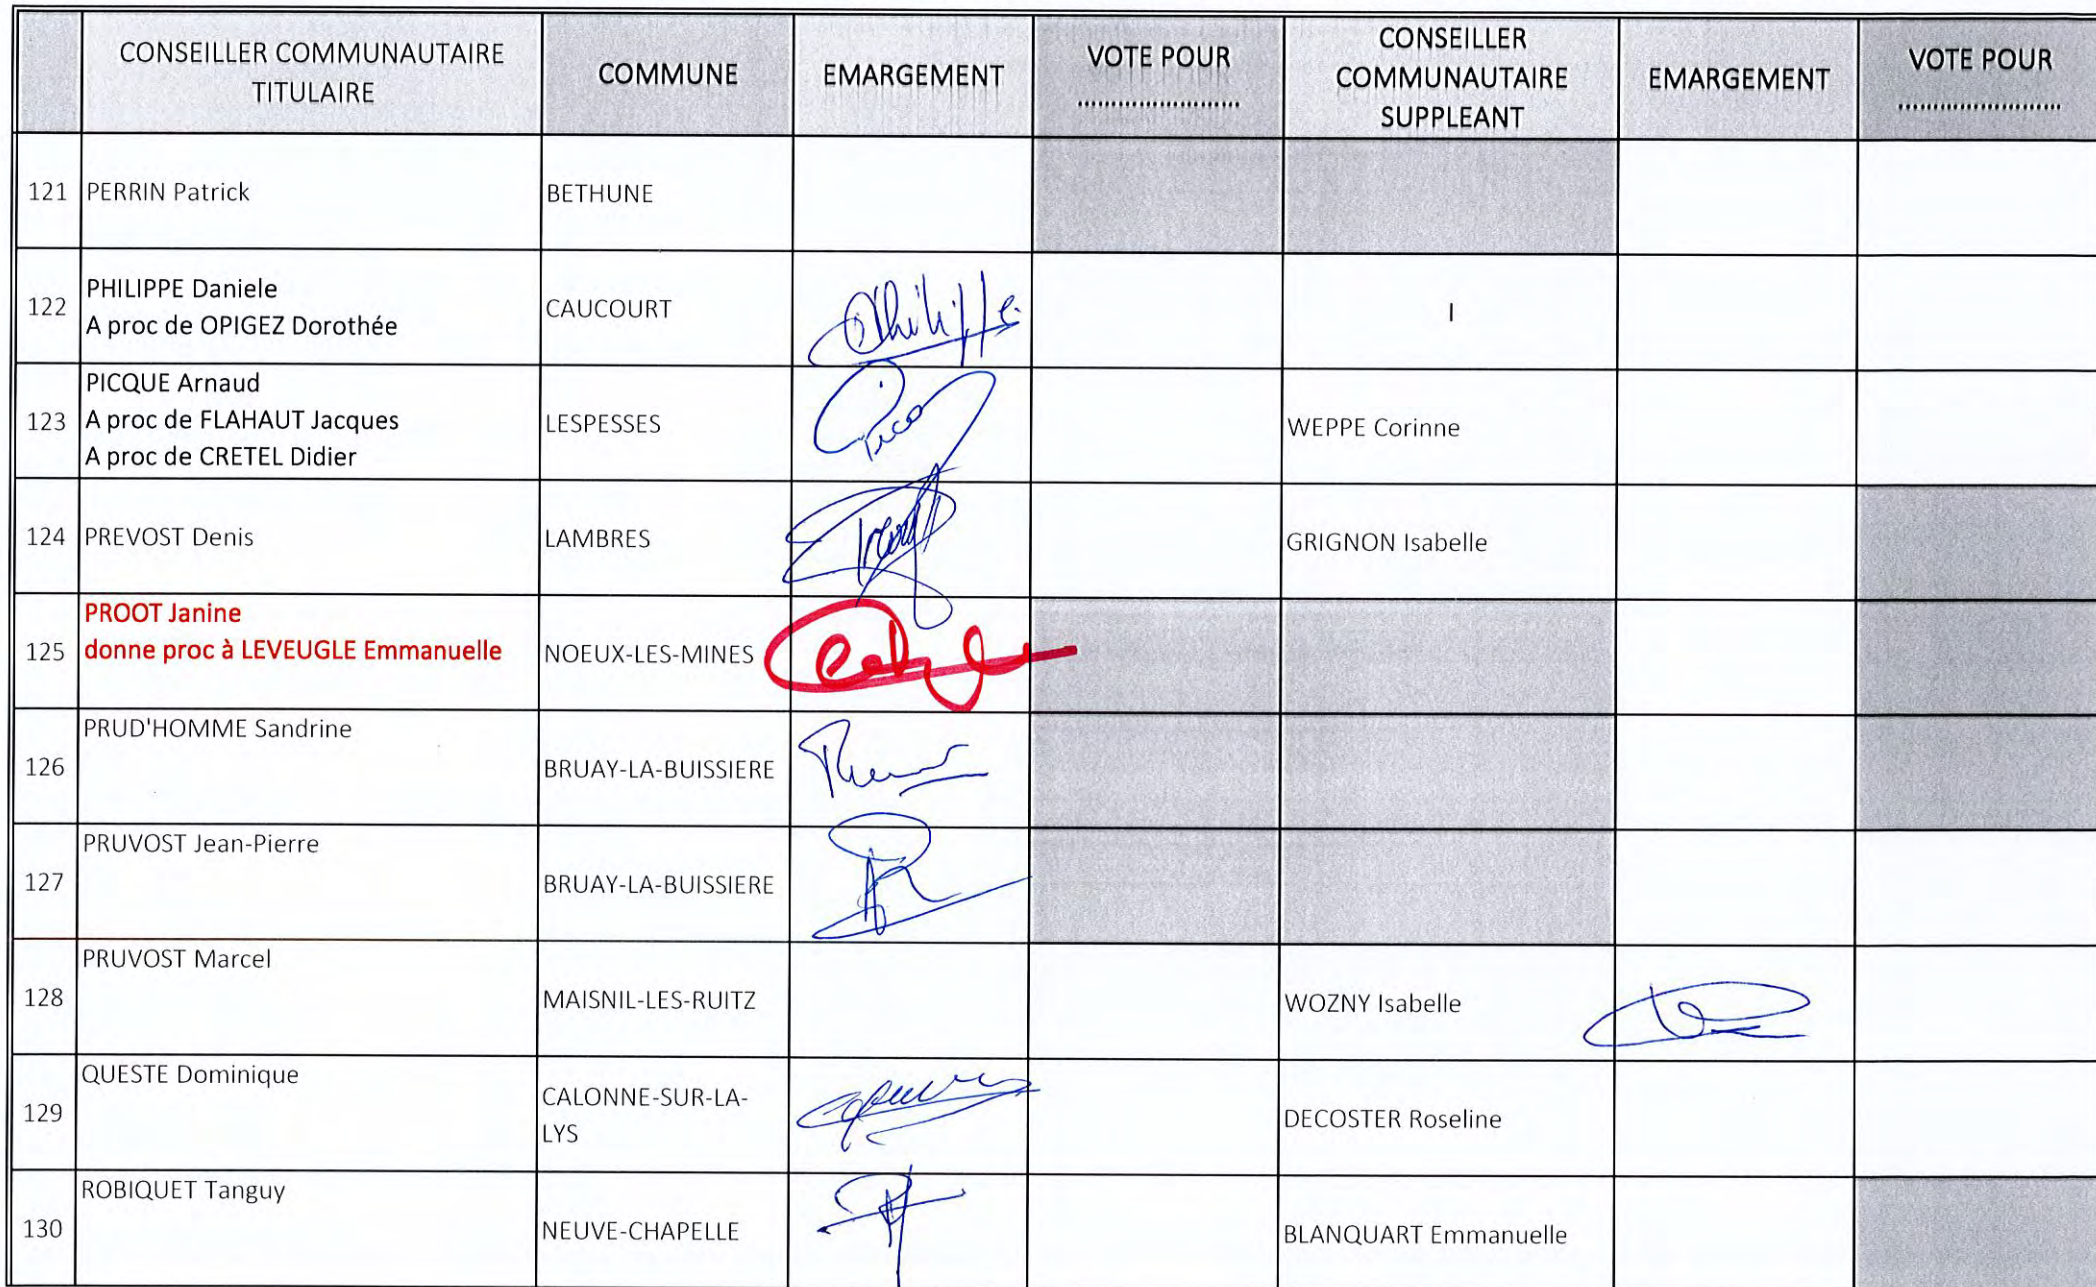 CONSEILLER COMMUNAUTAIRE
TITULAIRE
COMMUNE
EMARGEMENT
VOTE POUR
........................
CONSEILLER
COMMUNAUTAIRE
SUPPLEANT
EMARGEMENT
VOTE POUR
........................
121 PERRIN Patrick BETHUNE
122 PHILIPPE Daniele
A proc de OPIGEZ Dorothée
CAUCOURT Philippe I
123 PICQUE Arnaud
A proc de FLAHAUT Jacques
A proc de CRETEL Didier
LESPESSES WEPPE Corinne
124 PREVOST Denis LAMBRES GRIGNON Isabelle
125 PROOT Janine
donne proc à LEVEUGLE Emmanuelle
NOEUX-LES-MINES
126 PRUD'HOMME Sandrine BRUAY-LA-BUISSIERE
127 PRUVOST Jean-Pierre BRUAY-LA-BUISSIERE
128 PRUVOST Marcel MAISNIL-LES-RUITZ WOZNY Isabelle
129 QUESTE Dominique CALONNE-SUR-LA-
LYS
DECOSTER Roseline
130 ROBIQUET Tanguy NEUVE-CHAPELLE BLANQUART Emmanuelle